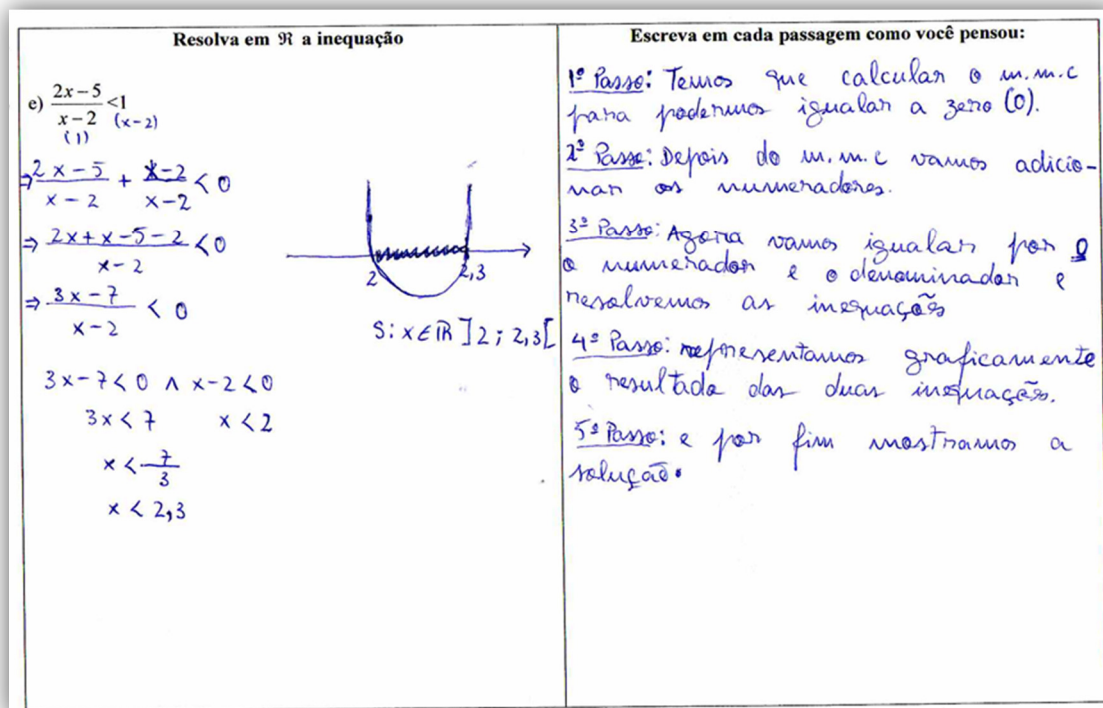 Resolva em ℜ a inequação
e) (2x – 5)/(x – 2) <1
(1) (x-2)
⇒ (2x-5)/(x-2) + (x-2)/(x-2) < 0
⇒ (2x+x-5-2)/(x-2) < 0
⇒ (3x-7)/(x-2) < 0
3x-7<0 ∧ x-2<0
3x<7 x<2
x<7/3
x<2,3
2 2,3
S: x∈ℝ ]2; 2,3[
Escreva em cada passagem como você pensou:
1º Passo: Temos que calcular o m.m.c
para podermos igualar a zero (0).
2º Passo: Depois do m.m.c vamos adicio-
nar os numeradores.
3º Passo: Agora vamos igualar por 0
o numerador e o denominador e
resolvemos as inequações
4º Passo: representamos graficamente
o resultado das duas inequações.
5º Passo: e por fim mostramos a
solução.